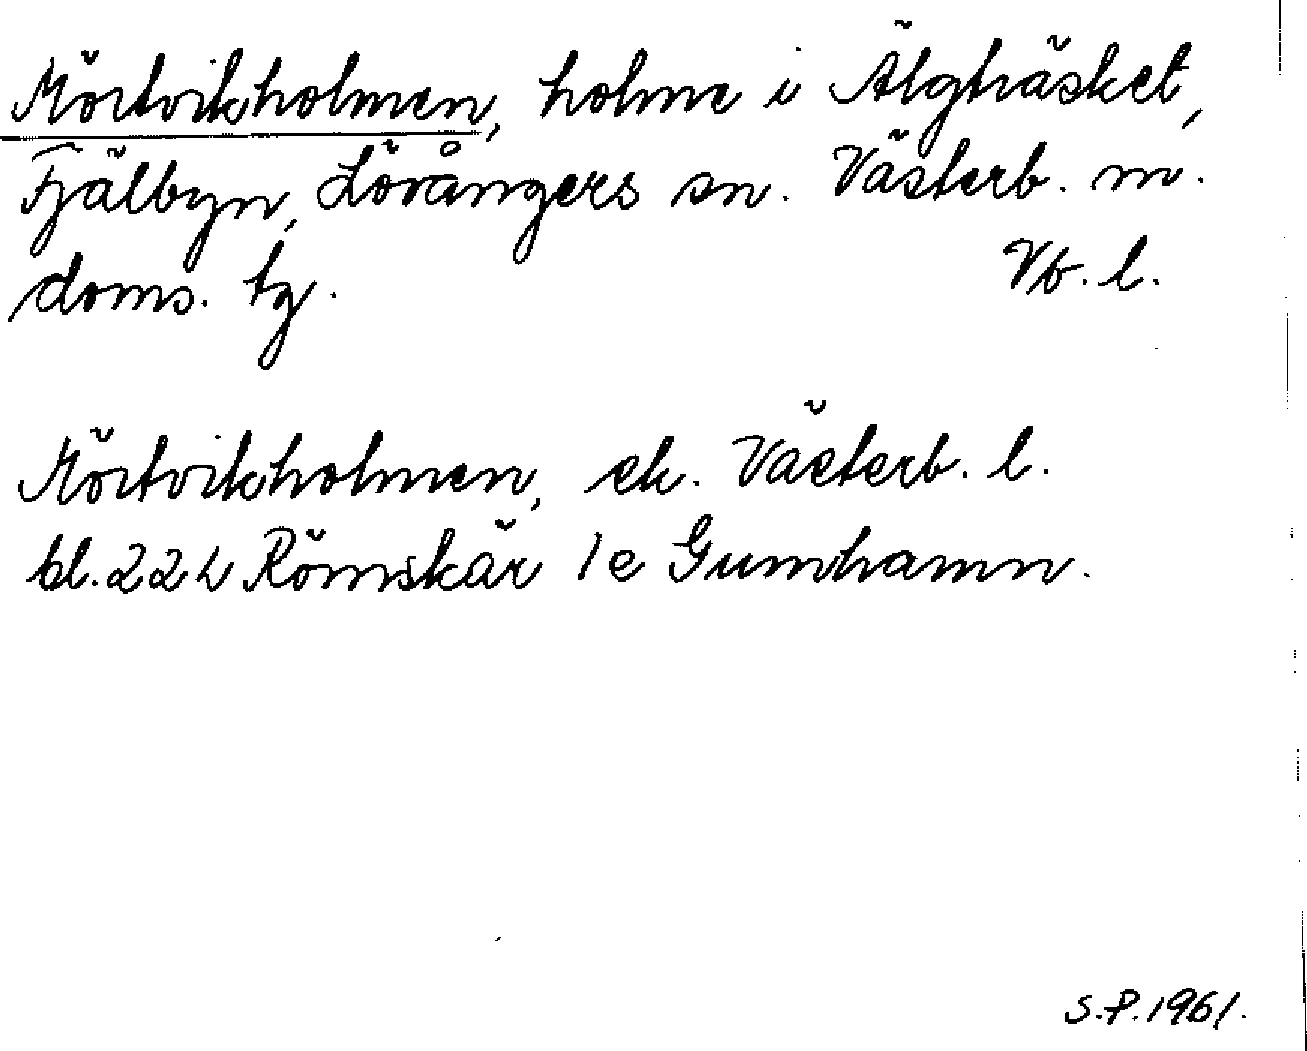 Mörtvikholmen, holme i Älgträsket,
Fjälbyn, Lövångers sn. Västerb. m.
doms. tg. Vb. l.
Mörtvikholmen, ek. Västerb. l.
bl. 22 L Römskär 1 e Gumhamn.
S.P. 1961.